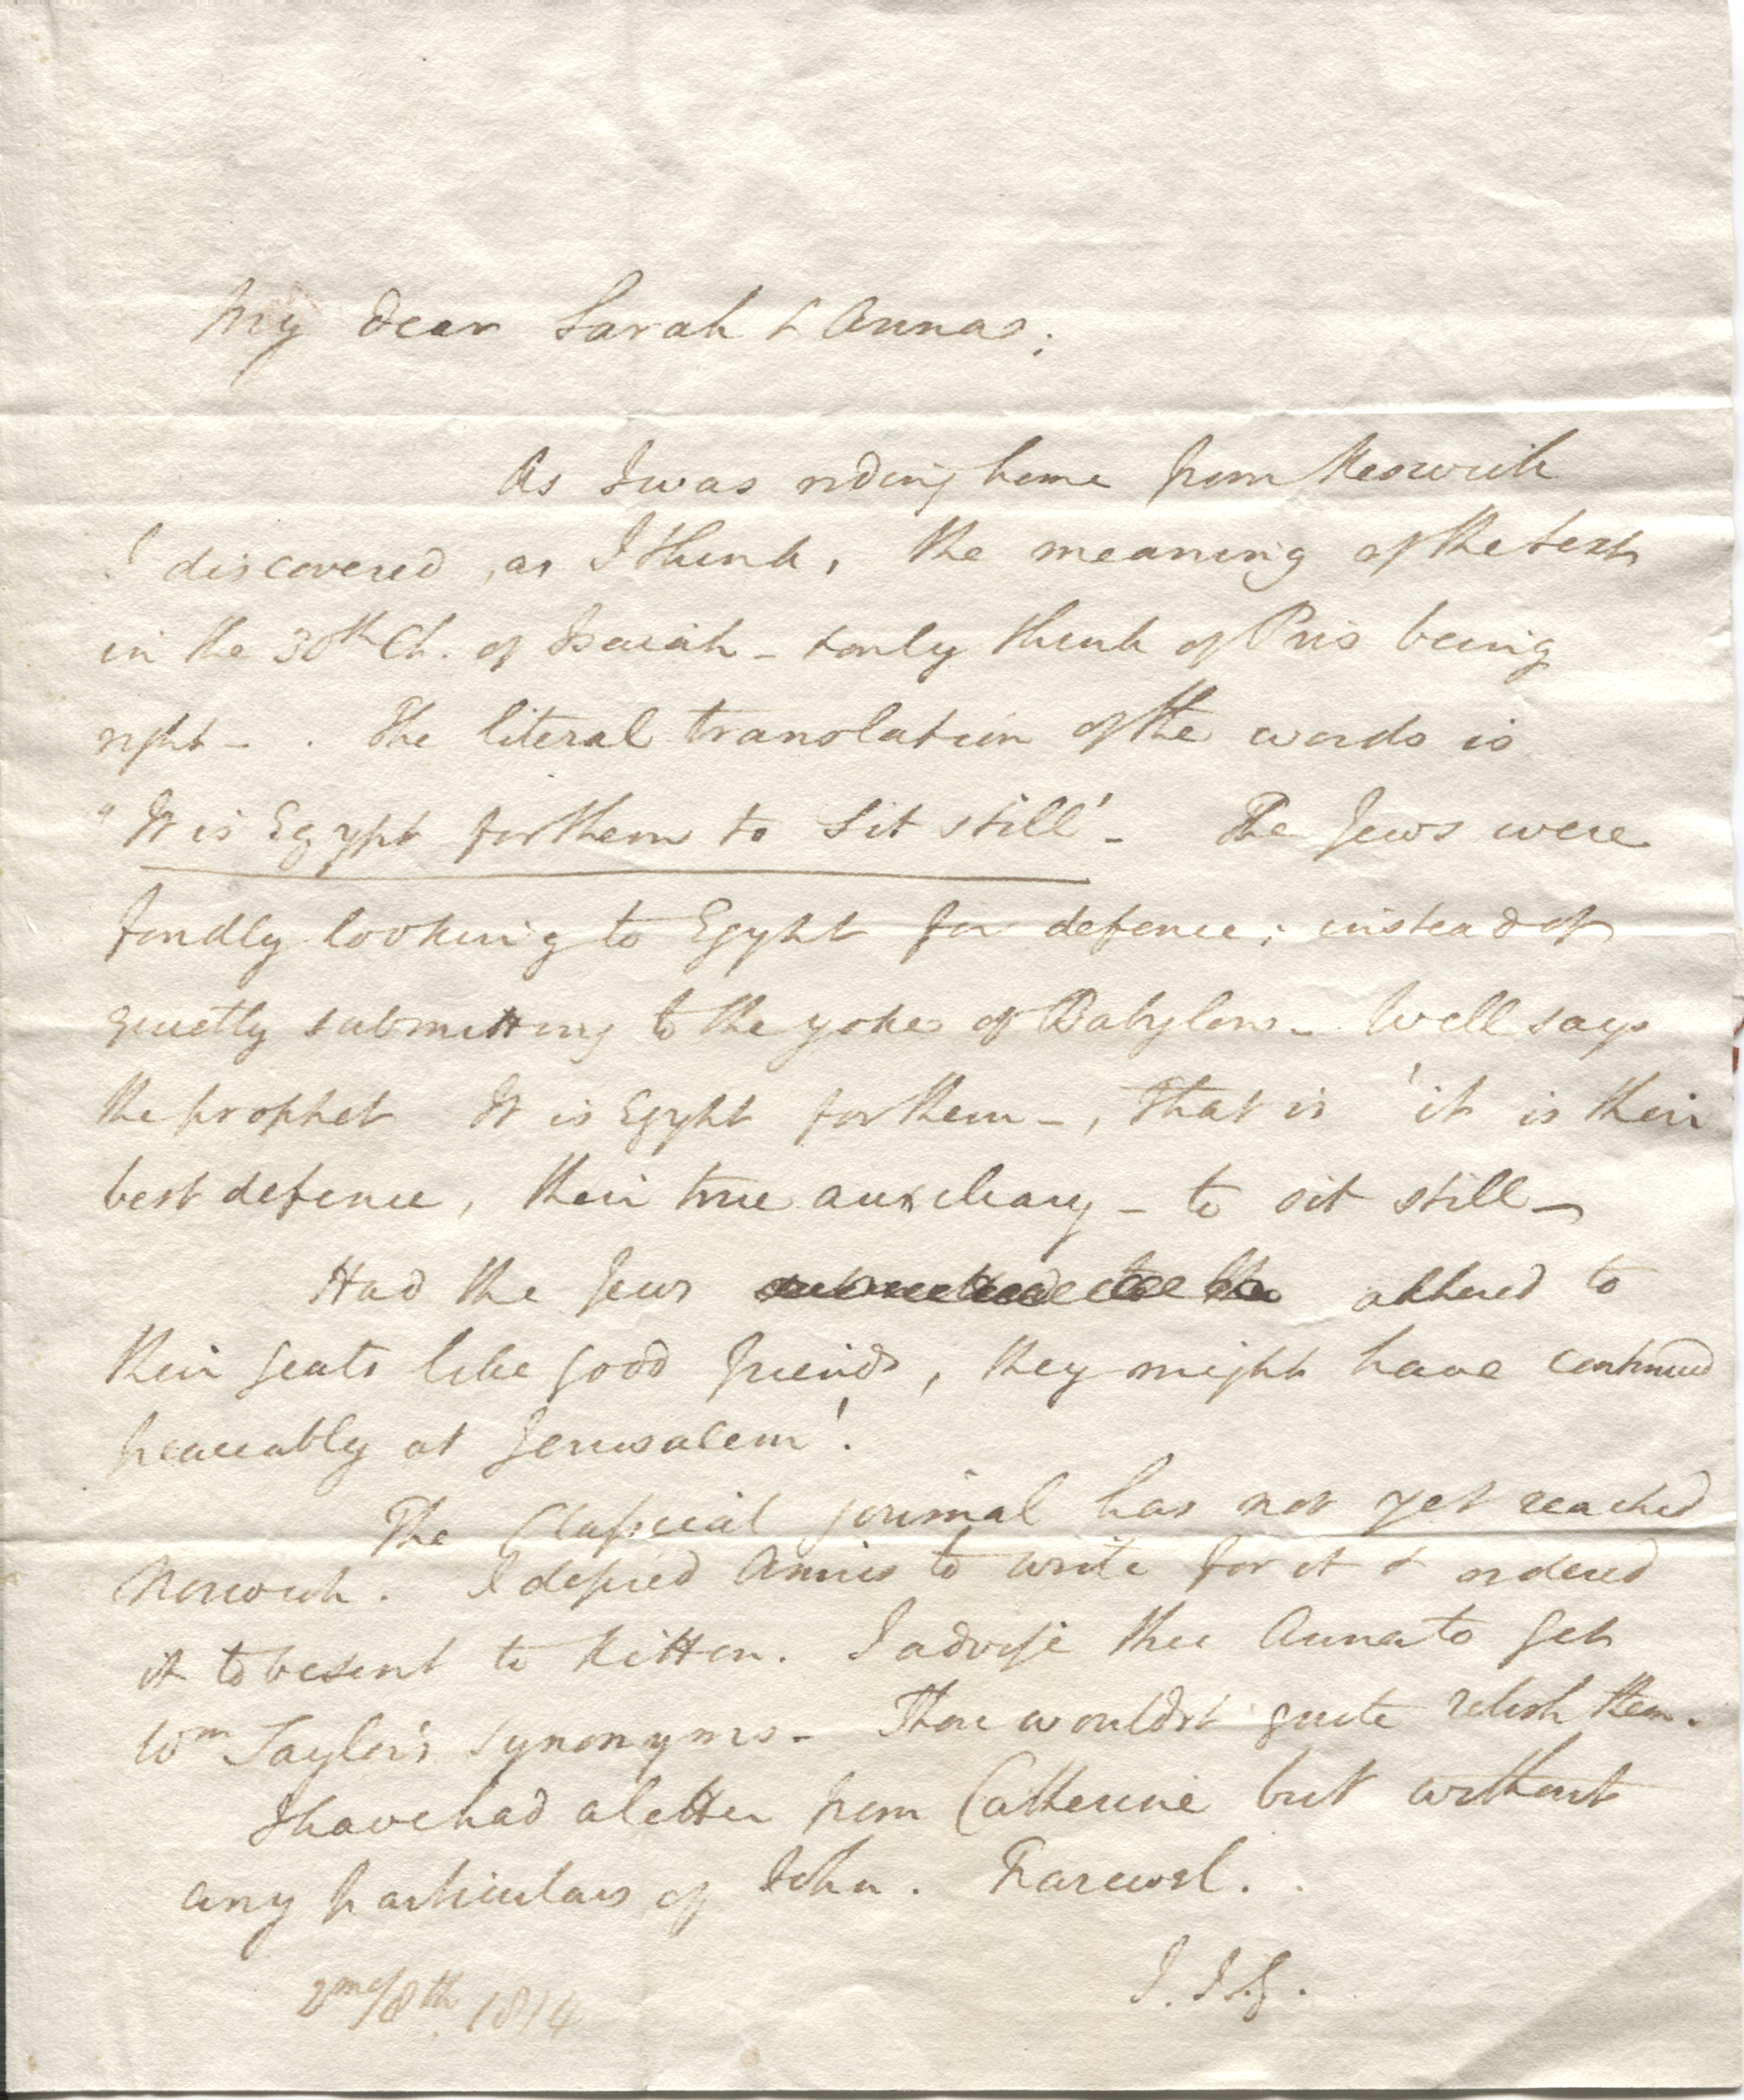 My dear Sarah & Anna;
As I was riding home from Keswick
I discovered, as I think, the meaning of the text
in the 30th Ch. of Isaiah - & only think of Pris being
right - . The literal translation of the words is
"It is Egypt for them to sit still' - The Jews were
fondly looking to Egypt for defence; instead of
quietly submitting to the yoke of Babylon - Well says
the prophet It is Egypt for them -, that is 'it is their
best defence, their true auxiliary - to sit still -
Had the Jews adhered to
their seats like good friends, they might have continued
peaceably at Jerusalem'.
The Classical journal has not yet reached
Norwich. I desired to write for it & ordered
it to be sent to Kitton. I advise thee Anna to get
Wm Taylor's synonyms - Thou wouldst quite relish them.
I have had a letter from Catherine but without
any particulars of John. Farewel.
J. J. G.
2mo/8th 1814